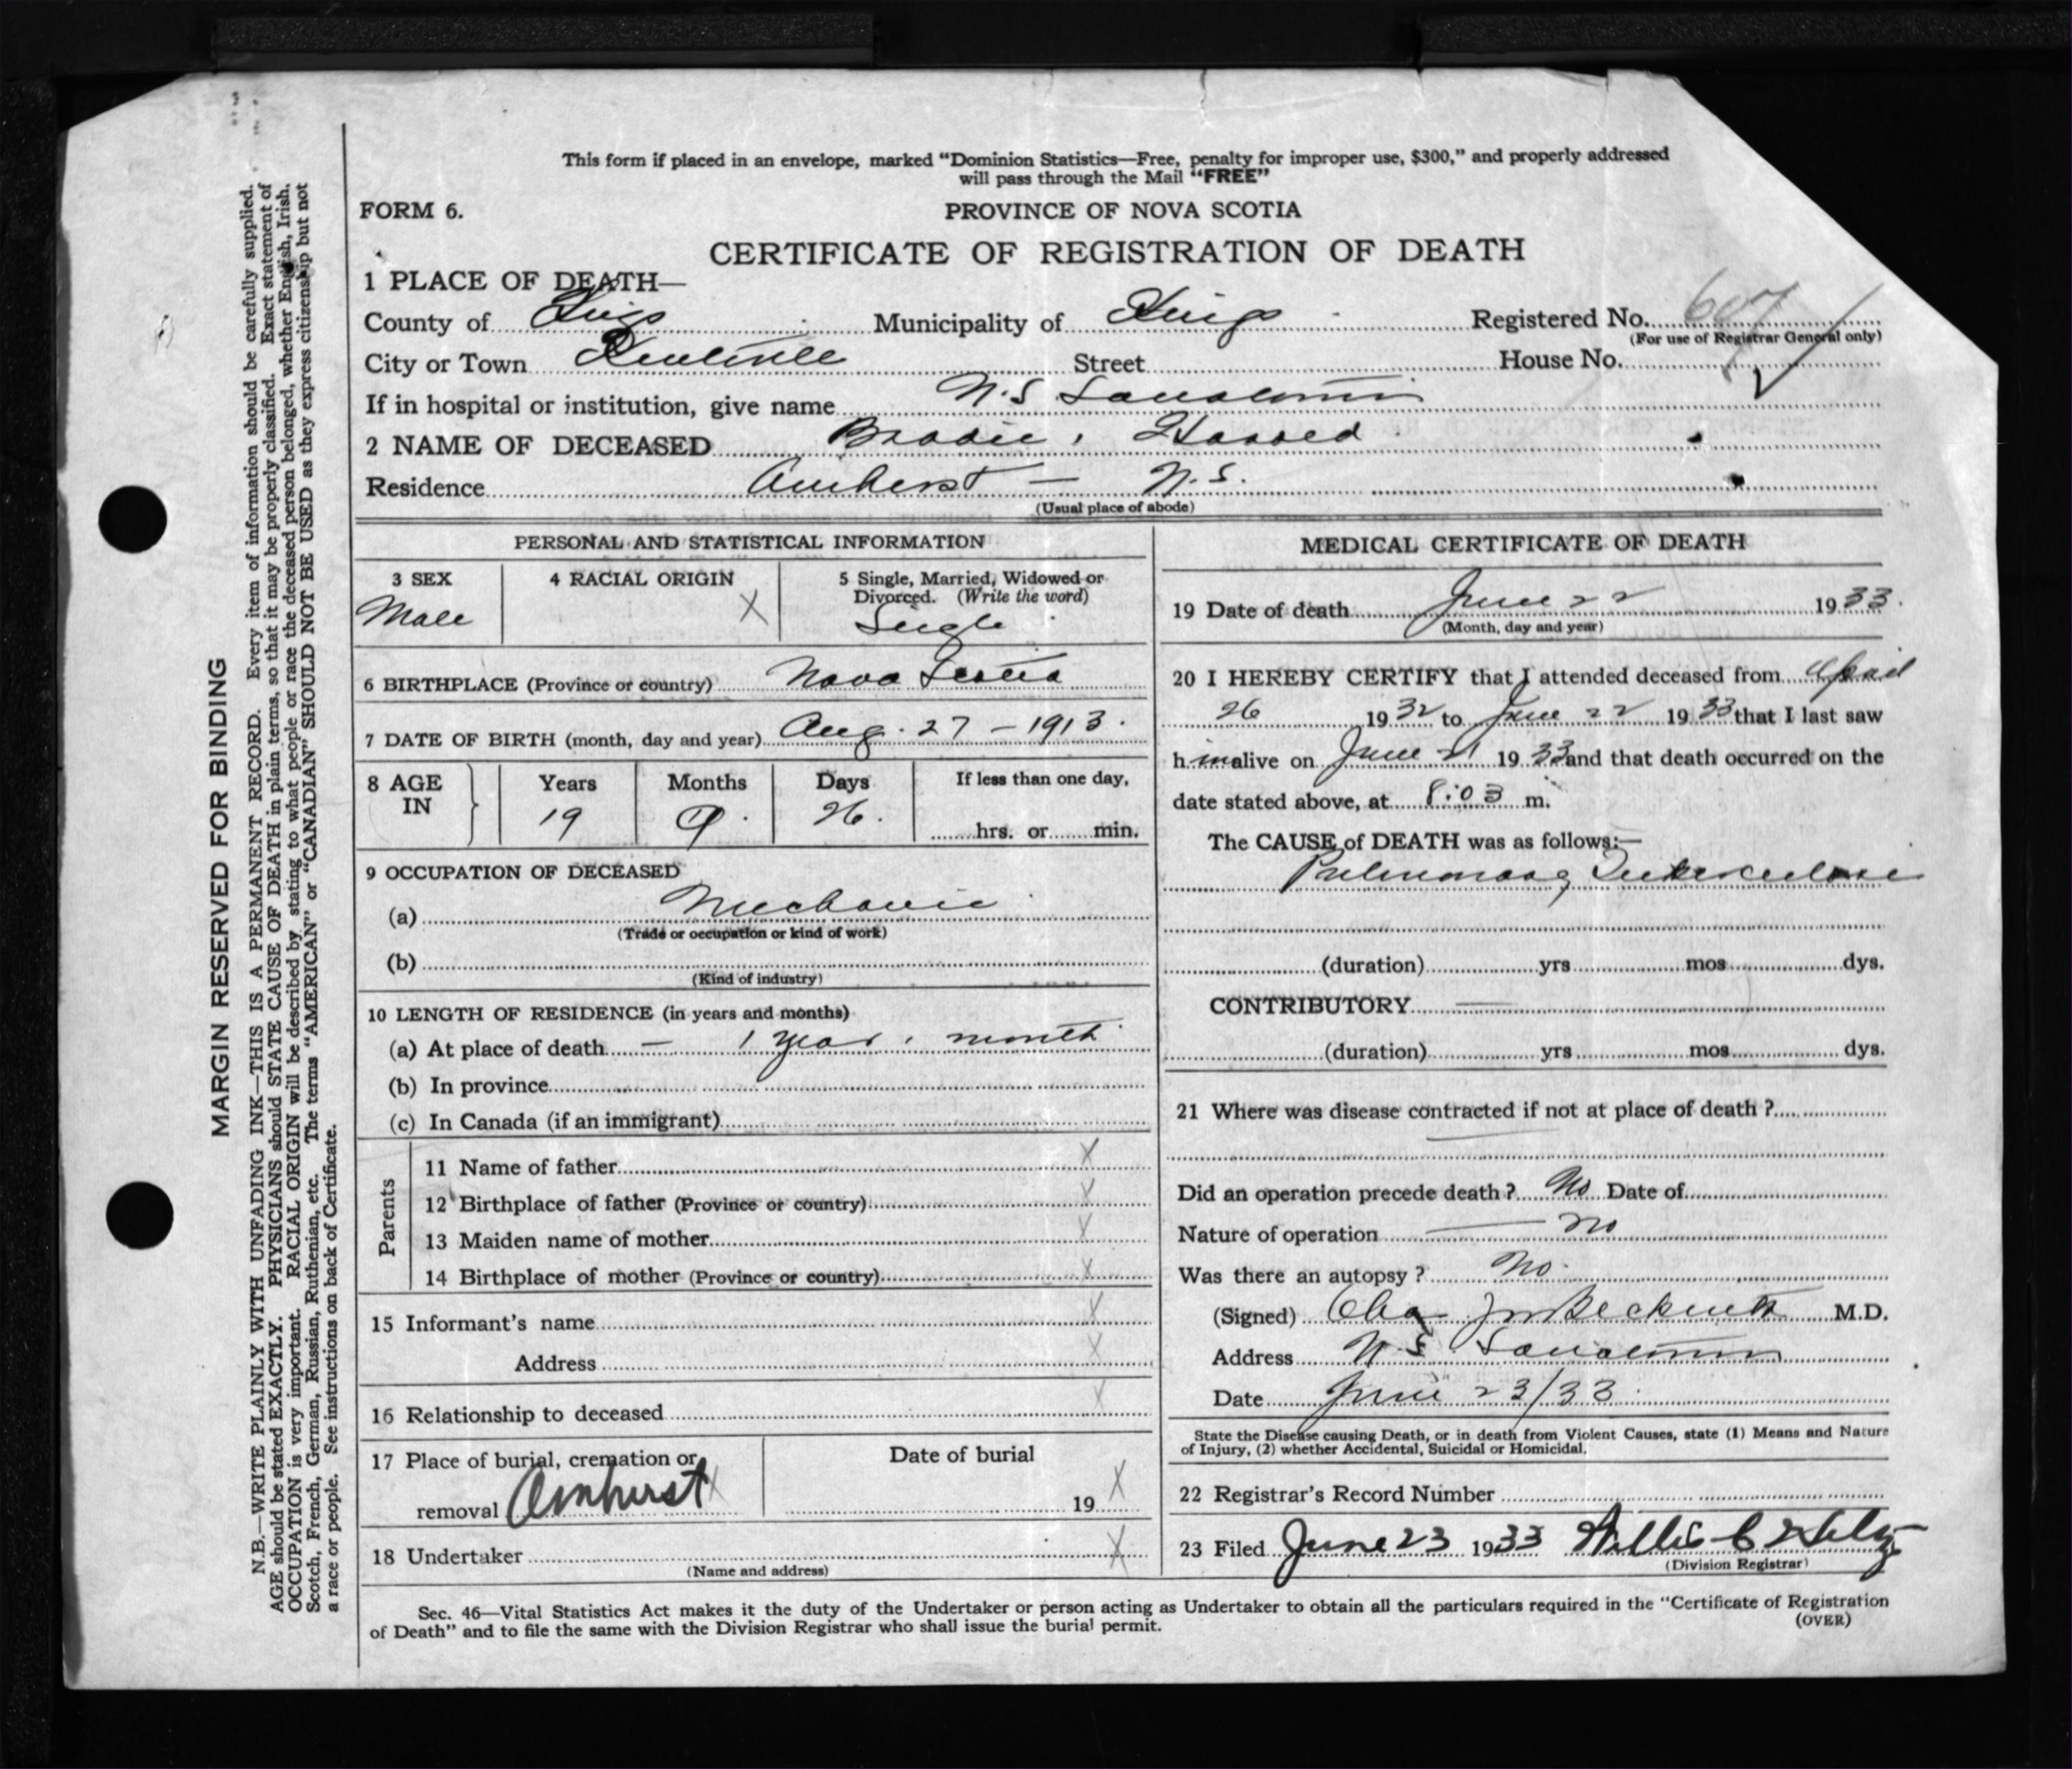 This form if placed in an envelope, marked "Dominion Statistics—Free, penalty for improper use, $300," and properly addressed
will pass through the Mail "FREE"
FORM 6.
PROVINCE OF NOVA SCOTIA
CERTIFICATE OF REGISTRATION OF DEATH
1 PLACE OF DEATH—
County of Kings Municipality of Kings Registered No. 607
(For use of Registrar General only)
City or Town Kentville Street House No.
If in hospital or institution, give name N.S. Sanatorium
2 NAME OF DECEASED Brodie, Harold
Residence Amherst — N.S.
(Usual place of abode)
PERSONAL AND STATISTICAL INFORMATION
3 SEX 4 RACIAL ORIGIN 5 Single, Married, Widowed or
Divorced. (Write the word)
Male X Single
6 BIRTHPLACE (Province or country) Nova Scotia
7 DATE OF BIRTH (month, day and year) Aug. 27 - 1913.
8 AGE IN Years Months Days If less than one day,
19 9 26. hrs. or min.
9 OCCUPATION OF DECEASED
(a) Mechanic
(Trade or occupation or kind of work)
(b)
(Kind of industry)
10 LENGTH OF RESIDENCE (in years and months)
(a) At place of death — 1 year, month
(b) In province
(c) In Canada (if an immigrant)
Parents
11 Name of father X
12 Birthplace of father (Province or country) X
13 Maiden name of mother X
14 Birthplace of mother (Province or country) X
15 Informant's name X
Address X
16 Relationship to deceased X
17 Place of burial, cremation or Date of burial
removal Amherst X 19 X
18 Undertaker X
(Name and address)
MEDICAL CERTIFICATE OF DEATH
19 Date of death June 22 1933.
(Month, day and year)
20 I HEREBY CERTIFY that I attended deceased from April
26 1932 to June 22 1933 that I last saw
him alive on June 21 1933 and that death occurred on the
date stated above, at 8:03 m.
The CAUSE of DEATH was as follows:—
Pulmonary Tuberculosis
(duration) yrs mos dys.
CONTRIBUTORY
(duration) yrs mos dys.
21 Where was disease contracted if not at place of death?
Did an operation precede death? No Date of
Nature of operation — no
Was there an autopsy? No
(Signed) M.D.
Address N S Sanatorium
Date June 23/33
State the Disease causing Death, or in death from Violent Causes, state (1) Means and Nature
of Injury, (2) whether Accidental, Suicidal or Homicidal.
22 Registrar's Record Number
23 Filed June 23 1933 Willis C
(Division Registrar)
Sec. 46—Vital Statistics Act makes it the duty of the Undertaker or person acting as Undertaker to obtain all the particulars required in the "Certificate of Registration
of Death" and to file the same with the Division Registrar who shall issue the burial permit.
(OVER)
MARGIN RESERVED FOR BINDING
N.B.—WRITE PLAINLY WITH UNFADING INK—THIS IS A PERMANENT RECORD. Every item of information should be carefully supplied.
AGE should be stated EXACTLY. PHYSICIANS should STATE CAUSE OF DEATH in plain terms, so that it may be properly classified. Exact statement of
OCCUPATION is very important. RACIAL ORIGIN will be described by stating to what people or race the deceased person belonged, whether English, Irish,
Scotch, French, German, Russian, Ruthenian, etc. The terms "AMERICAN" or "CANADIAN" SHOULD NOT BE USED as they express citizenship but not
a race or people. See instructions on back of Certificate.